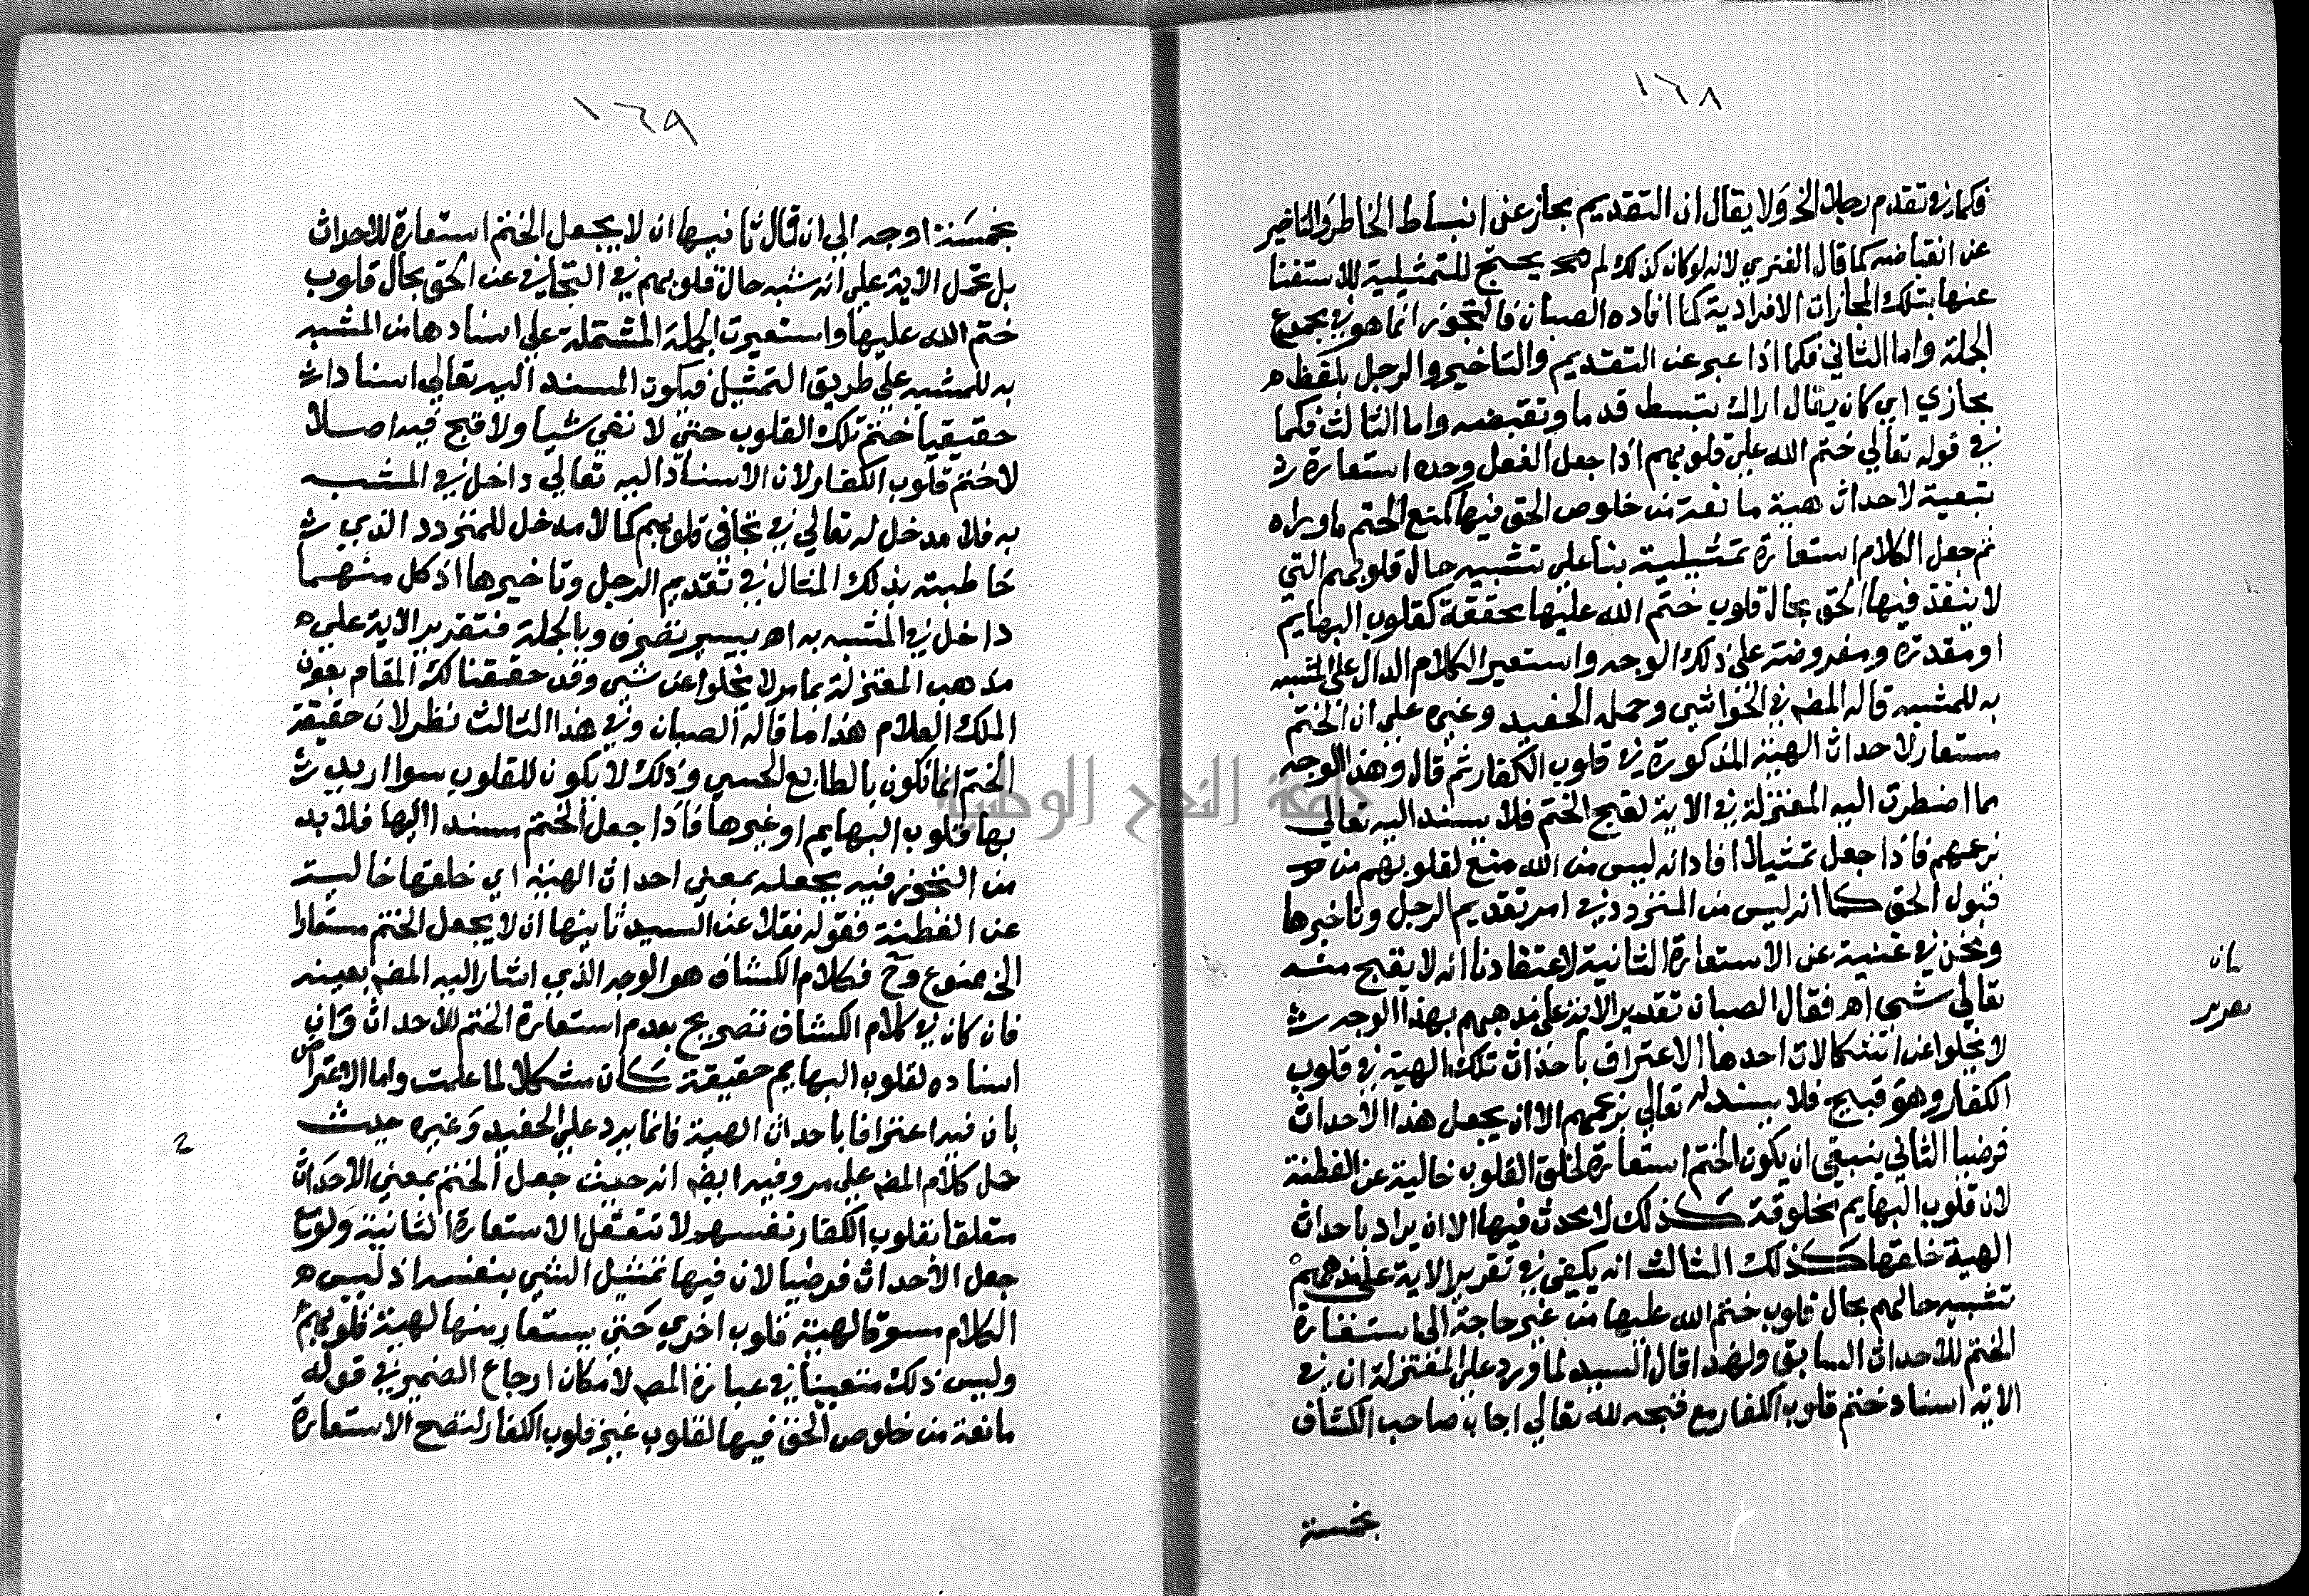 ١٦٨
فكما في تقدم رجلا الخ ولا يقال ان التقديم مجاز عن انبساط الخاطر والتاخير
عن انقباضه كما قال الفنري لانه لو كان كذلك لم يحتج للتمثيلية للاستغنا
عنها بتلك المجازات الافرادية كما افاده الصبان فالتجوز انما هو في مجموع
الجملة واما الثاني فكما اذا عبر عن التقديم والتاخير والرجل بلفظ
مجازي اي كان يقال اراك تبسط قدما وتقبضه واما الثالث فكما
في قوله تعالي ختم الله علي قلوبهم اذا جعل الفعل وحده استعارة
تبعية لاحداث هيئة مانعة من خلوص الحق فيها كمنع الختم ما وراه
ثم جعل الكلام استعارة تمثيلية بنا علي تشبيه حال قلوبهم التي
لا ينفذ فيها الحق بحال قلوب ختم الله عليها محققة كقلوب البهايم
او مقدرة ومفروضة علي ذلك الوجه واستعير الكلام الدال علي المشبه
به للمشبه قاله المصـ في الحواشي وحمله الحفيد وغيره علي ان الختم
مستعار لاحداث الهيئة المذكورة في قلوب الكفار ثم قال وهذا الوجه
مما اضطرت اليه المعتزلة في الاية لقبح الختم فلا يسند اليه تعالي
بزعمهم فاذا جعل تمثيلا افاد انه ليس من الله منع لقلوبهم من
قبول الحق كما انه ليس من المتردد في امر تقديم الرجل وتاخيرها
ونحن في غنية عن الاستعارة الثانية لاعتقادنا انه لا يقبح منه
تعالي شي اهـ فقال الصبان تقدير الاية علي مذهبهم بهذا الوجه
لا يخلوا عن اشكالات احدها الاعتراف باحداث تلك الهيئة في قلوب
الكفار وهو قبيح فلا يسند له تعالي بزعمهم الا ان يجعل هذا الاحداث
فرضيا الثاني ينبغي ان يكون الختم استعارة لخلق القلوب خالية عن الفطنة
لان قلوب البهايم مخلوقة كذلك لا يحدث فيها الا ان يراد باحداث
الهيئة خلقها كذلك الثالث انه يكفي في تقرير الاية علي مذهبهم
تشبيه حالهم بحال قلوب ختم الله عليها من غير حاجة الي استعارة
الختم للاحداث السابق ولهذا قال السيد لما ورد علي المعتزلة ان في
الاية اسناد ختم قلوب الكفار مع قبحه لله تعالي اجاب صاحب الكشاف
بخمسة
١٦٩
بخمسة اوجه الي ان قال ثانيها ان لا يجعل الختم استعارة للاحداث
بل تحمل الاية علي انه شبه حال قلوبهم في التجافي عن الحق بحال قلوب
ختم الله عليها واستعيرت الجملة المشتملة علي اسنادها من المشبه
به للمشبه علي طريق التمثيل فيكون المسند اليه تعالي اسنادا
حقيقيا ختم تلك القلوب حتي لا تعي شيا ولا قبح فيه اصلا
لا ختم قلوب الكفار لان الاسناد اليه تعالي داخل في المشبه
به فلا مدخل له تعالي في تجافي قلوبهم كما لا مدخل للمتردد الذي
خاطبته بذلك المثال في تقديم الرجل وتاخيرها اذ كل منهما
داخل في المشبه به اهـ بيسير تصرف وبالجملة فتقرير الاية علي
مذهب المعتزلة بما مر لا يخلوا عن شي وقد حققنا لك المقام بعون
الملك العلام هذا ما قاله الصبان وفي هذا الثالث نظر لان حقيقة
الختم انما تكون بالطابع الحسي وذلك لا يكون للقلوب سوا اريد
بها قلوب البهايم او غيرها فاذا جعل الختم مسندا اليها فلا بد
من التجوز فيه بجعله بمعني احداث الهيئة اي خلقها خالية
عن الفطنة فقوله نقلا عن السيد ثانيها ان لا يجعل الختم مستعارا
الخ ممنوع وح فكلام الكشاف هو الوجه الذي اشار اليه المصـ بعينه
فان كان في كلام الكشاف تصريح بعدم استعارة الختم للاحداث وان
اسناده لقلوب البهايم حقيقة كان مشكلا لما علمت واما الاعتراض
بان فيه اعترافا باحداث الهيئة فانما يرد علي الحفيد وغيره حيث
حمل كلام المصـ علي مر وفيه ايضـ انه حيث جعل الختم بمعني الاحداث
متعلقا بقلوب الكفار نفسهم لا تتعقل الاستعارة الثانية ولو مع
جعل الاحداث فرضيا لان فيها تمثيل الشي بنفسه اذ ليس
الكلام مسوقا لهيئة قلوب اخري حتي يستعار منها لهيئة قلوبهم
وليس ذلك متعينا في عبارة المصـ لامكان ارجاع الضمير في قوله
مانعة من خلوص الحق فيها لقلوب غير قلوب الكفار لتصح الاستعارة